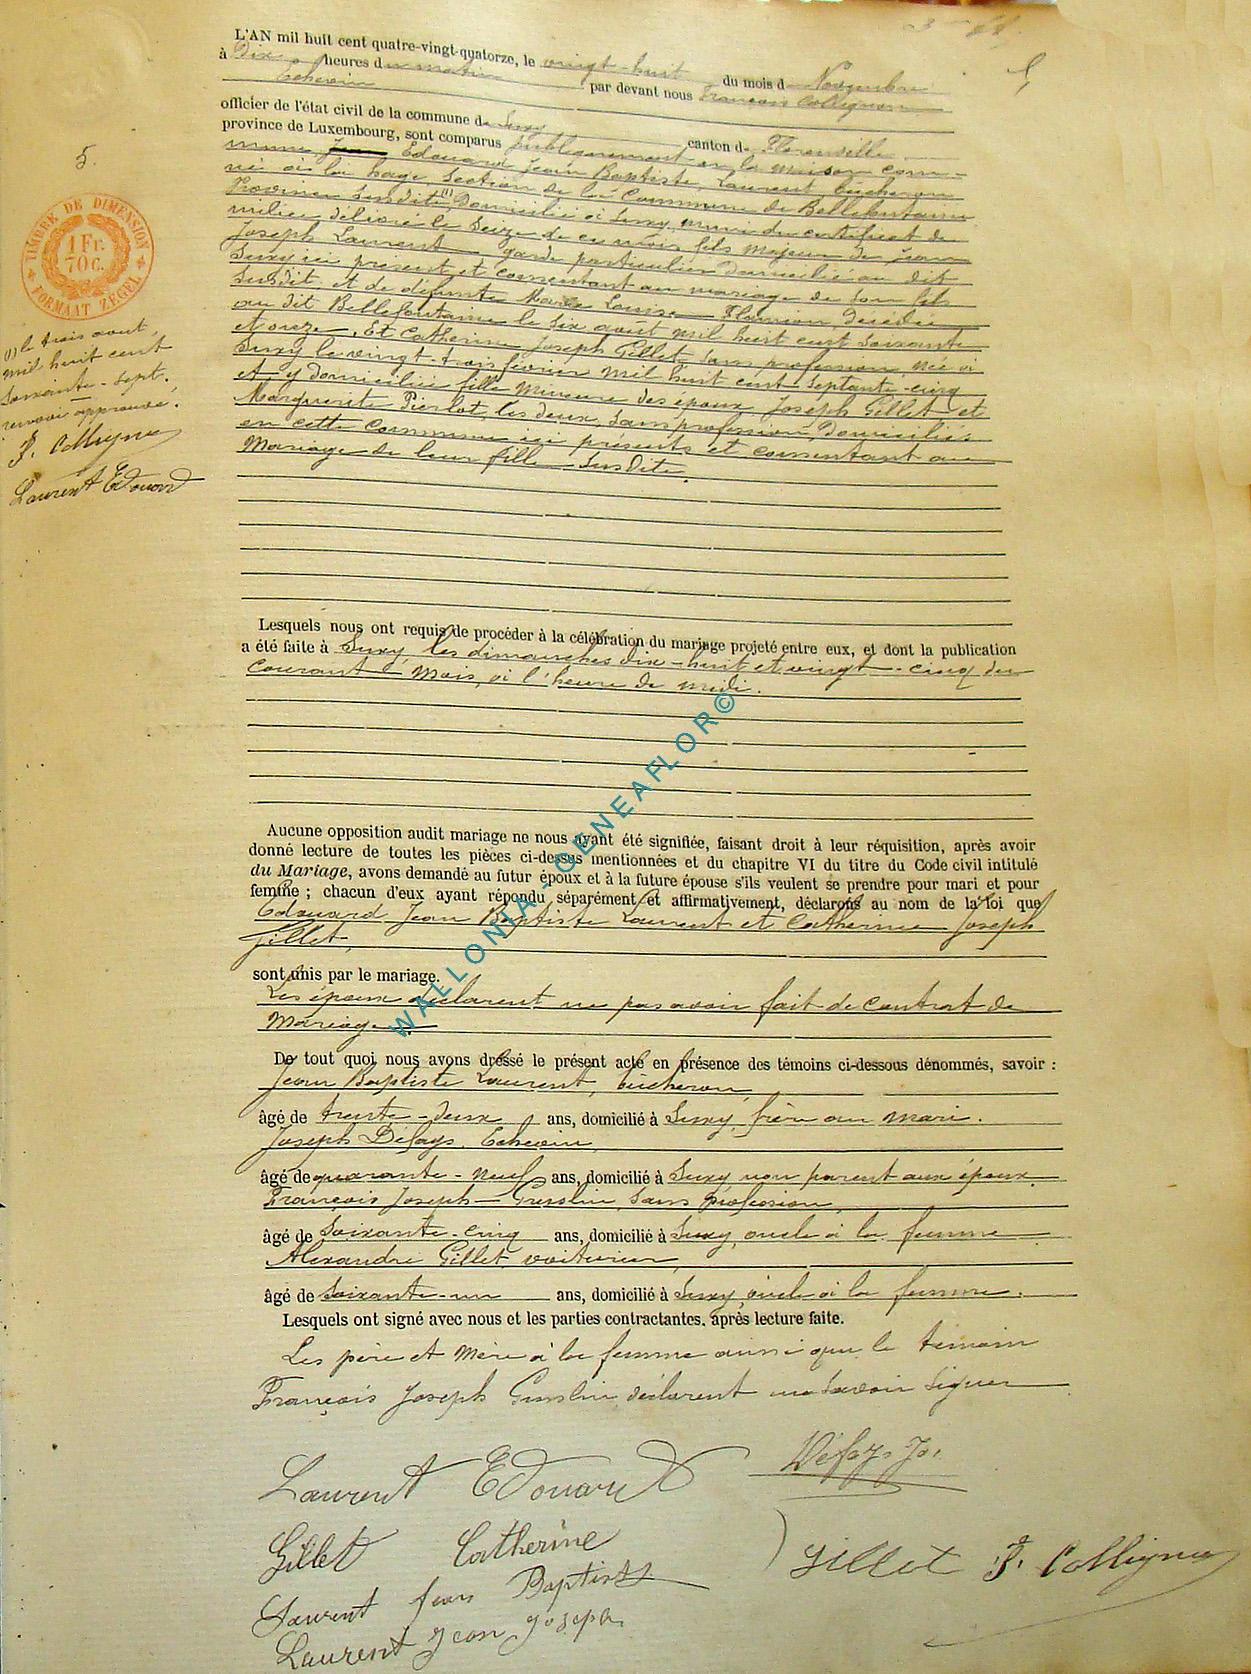 L'AN mil huit cent quatre-vingt-quatorze, le vingt-huit du mois d Novembre
à Dix heures du matin par devant nous François Collignon
Echevin
officier de l'état civil de la commune de Suxy canton de Florenville
province de Luxembourg, sont comparus publiquement en la maison com-
mune Edouard Jean Baptiste Laurent bûcheron
né à la hage Section de la Commune de Bellefontaine
Province susdite (1) Domicilié à Suxy, muni du certificat de
milice délivré le Seize de ce mois fils majeur de Jean
Joseph Laurent garde particulier Domicilié au dit
Suxy ici présent et consentant au mariage de son fils
susdit et de défunte Marie Louise décédée
au dit Bellefontaine le six août mil huit cent soixante
et onze. Et Catherine Joseph Gillet, sans profession, née à
Suxy le vingt-trois février mil huit cent septante-cinq
et y domiciliée fille mineure des époux Joseph Gillet et
Marguerite Pierlot, les deux sans profession, Domiciliés
en cette Commune ici présents et consentant au
Mariage de leur fille susdite.
5.
TIMBRE DE DIMENSION
1 Fr.
70 c.
FORMAAT ZEGEL
(1) le trois août
mil huit cent
soixante-sept.
renvoi approuvé.
F. Collignon
Laurent Edouard
Lesquels nous ont requis de procéder à la célébration du mariage projeté entre eux, et dont la publication
a été faite à Suxy, les dimanches dix-huit et vingt-cinq du
courant mois, à l'heure de midi.
Aucune opposition audit mariage ne nous ayant été signifiée, faisant droit à leur réquisition, après avoir
donné lecture de toutes les pièces ci-dessus mentionnées et du chapitre VI du titre du Code civil intitulé
du Mariage, avons demandé au futur époux et à la future épouse s'ils veulent se prendre pour mari et pour
femme ; chacun d'eux ayant répondu séparément et affirmativement, déclarons au nom de la loi que
Edouard Jean Baptiste Laurent et Catherine Joseph
Gillet,
sont unis par le mariage.
Les époux déclarent ne pas avoir fait de contrat de
Mariage
De tout quoi nous avons dressé le présent acte en présence des témoins ci-dessous dénommés, savoir :
Jean Baptiste Laurent, bûcheron,
âgé de trente-deux ans, domicilié à Suxy, frère au mari.
Joseph Défays, Echevin,
âgé de quarante-neuf ans, domicilié à Suxy non parent aux époux.
François Joseph Gusslin, sans profession,
âgé de Soixante-cinq ans, domicilié à Suxy, oncle à la femme
Alexandre Gillet voiturier,
âgé de Soixante-un ans, domicilié à Suxy, oncle à la femme.
Lesquels ont signé avec nous et les parties contractantes, après lecture faite.
Les père et Mère à la femme ainsi que le témoin
François Joseph Gusslin déclarent ne savoir signer
Laurent Edouard
Défays Jos.
Gillet Catherine
Gillet F. Collignon
Laurent Jean Baptiste
Laurent Jean Joseph
WALLONIA-GENEAFLOR©